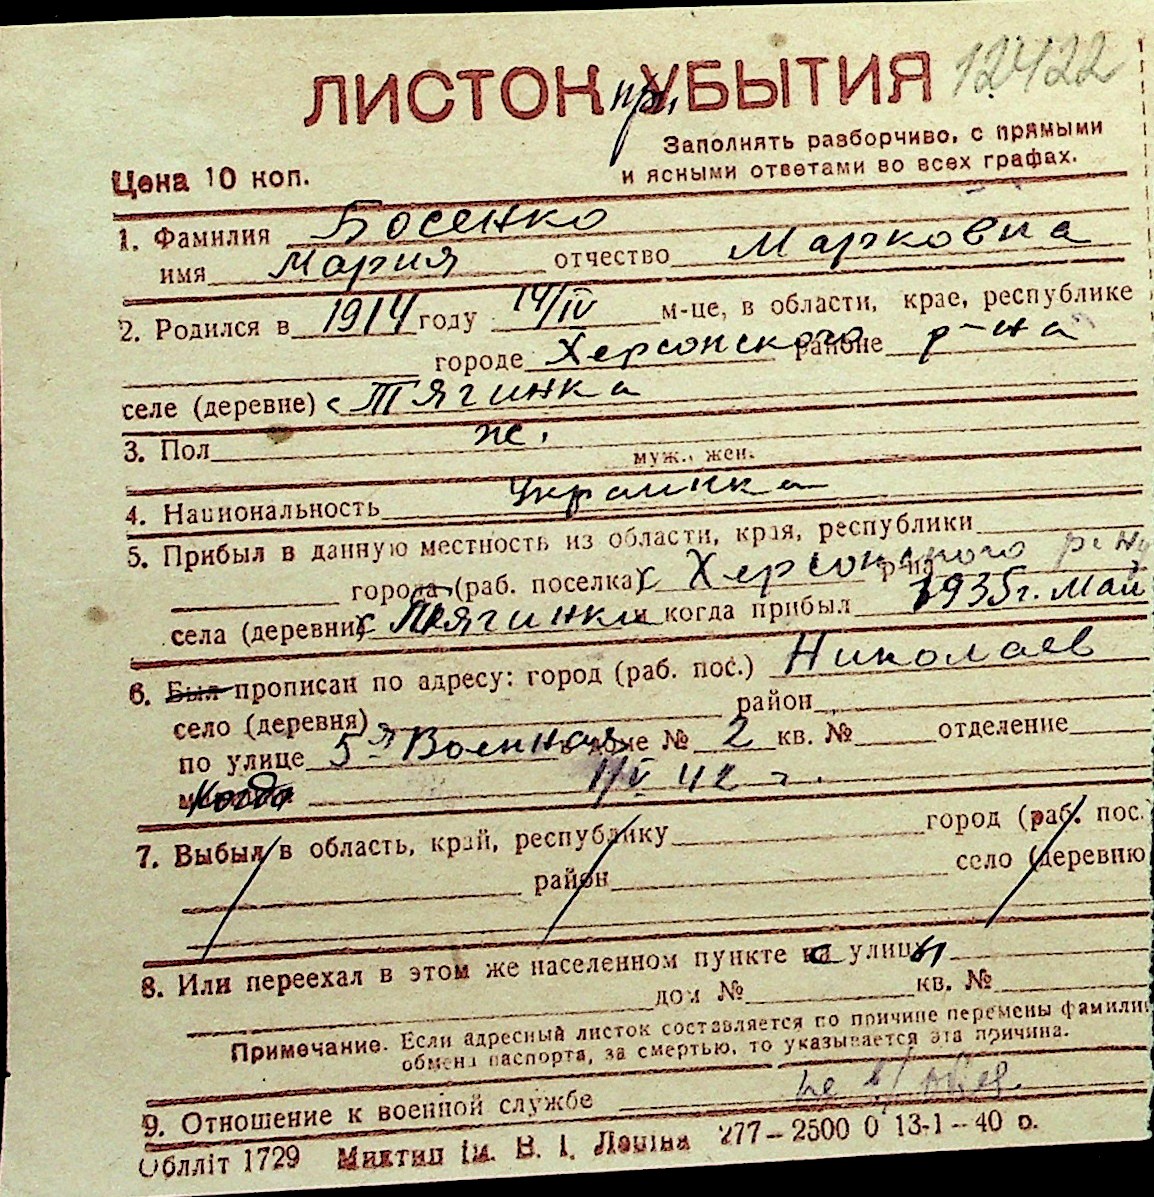 ЛИСТОК пр. УБЫТИЯ 12422
Заполнять разборчиво, с прямыми
и ясными ответами во всех графах.
Цена 10 коп.
1. Фамилия Босенко
имя Мария отчество Марковна
2. Родился в 1914 году 14/IV м-це, в области, крае, республике
городе Херсонского районе р-на
селе (деревне) с Тягинка
3. Пол ж.
муж., жен.
4. Национальность Украинка
5. Прибыл в данную местность из области, края, республики
города (раб. поселка) Херсонского р-на
села (деревни) с Тягинки и когда прибыл 1935 г. Май
6. Был прописан по адресу: город (раб. пос.) Николаев
село (деревня) район
по улице 5-я Военная в доме № 2 кв. № отделение
Когда 1/V 42 г.
7. Выбыл в область, край, республику город (раб. пос.
район село (деревню
8. Или переехал в этом же населенном пункте с улицы
дом № кв. №
Примечание. Если адресный листок составляется по причине перемены фамилии
обмена паспорта, за смертью, то указывается эта причина.
9. Отношение к военной службе не в/обяз.
Облліт 1729 Миктип ім. В. І. Леніна 277—2500 0 13-1—40 р.